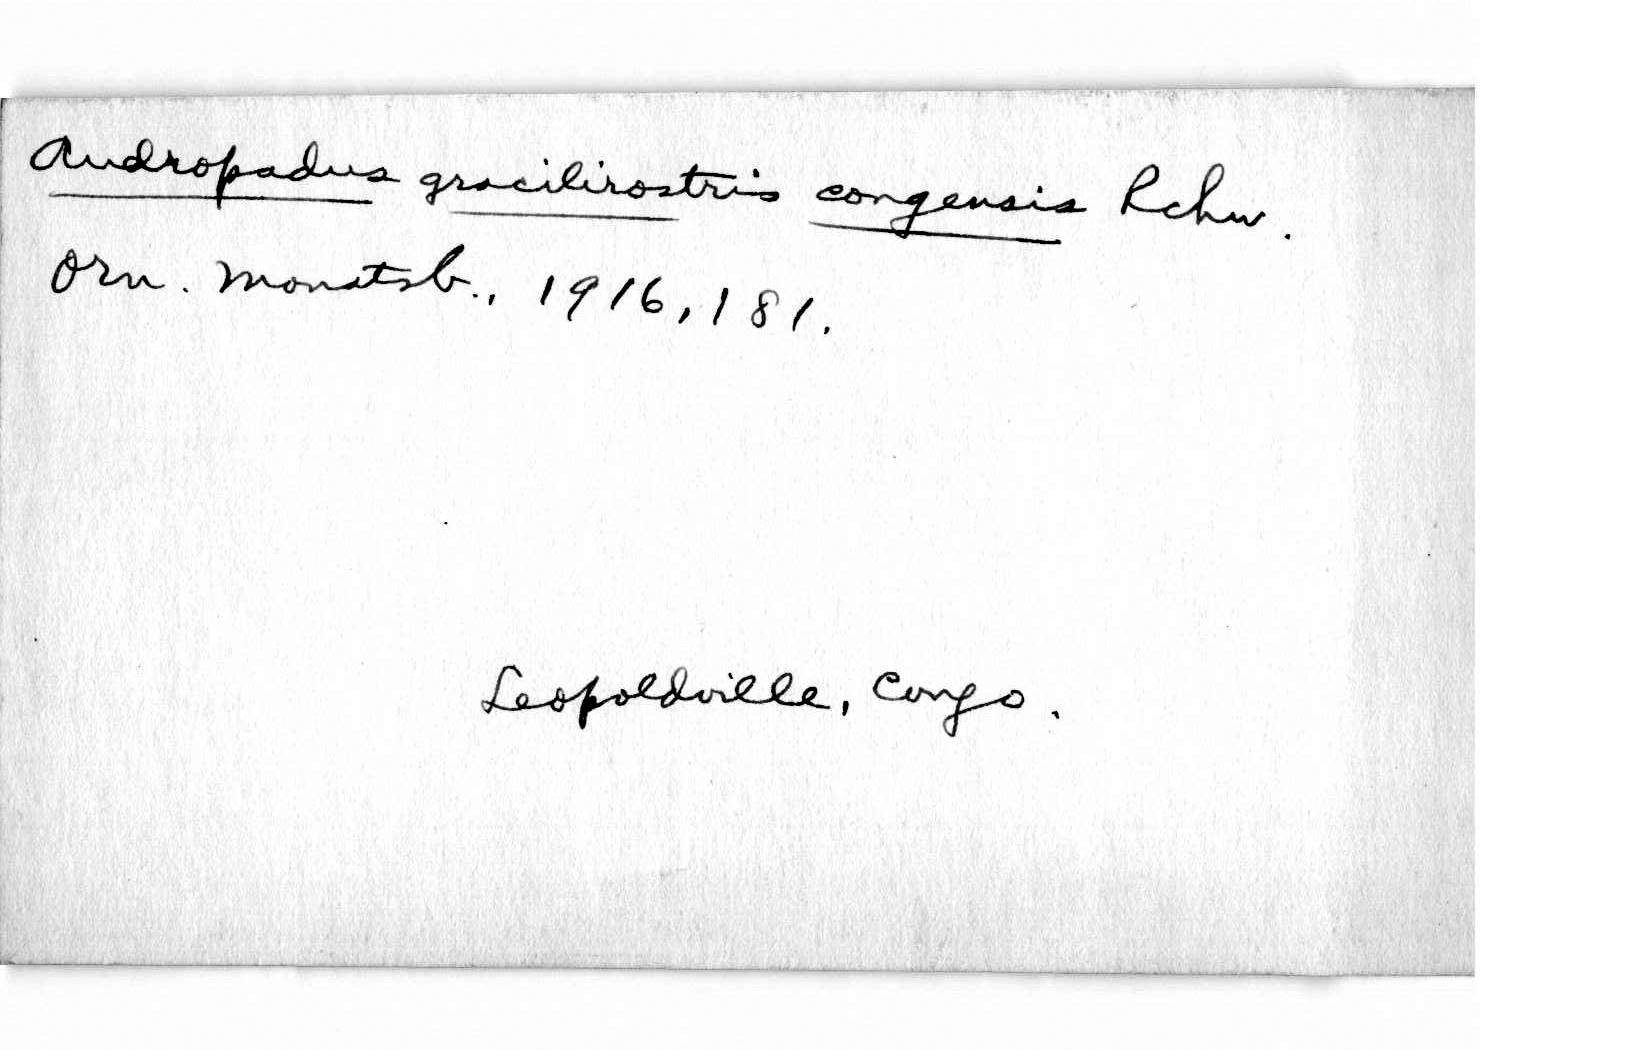 Andropadus gracilirostris congensis Rchw.
Orn. Monatsb., 1916, 181.
Leopoldville, Congo.